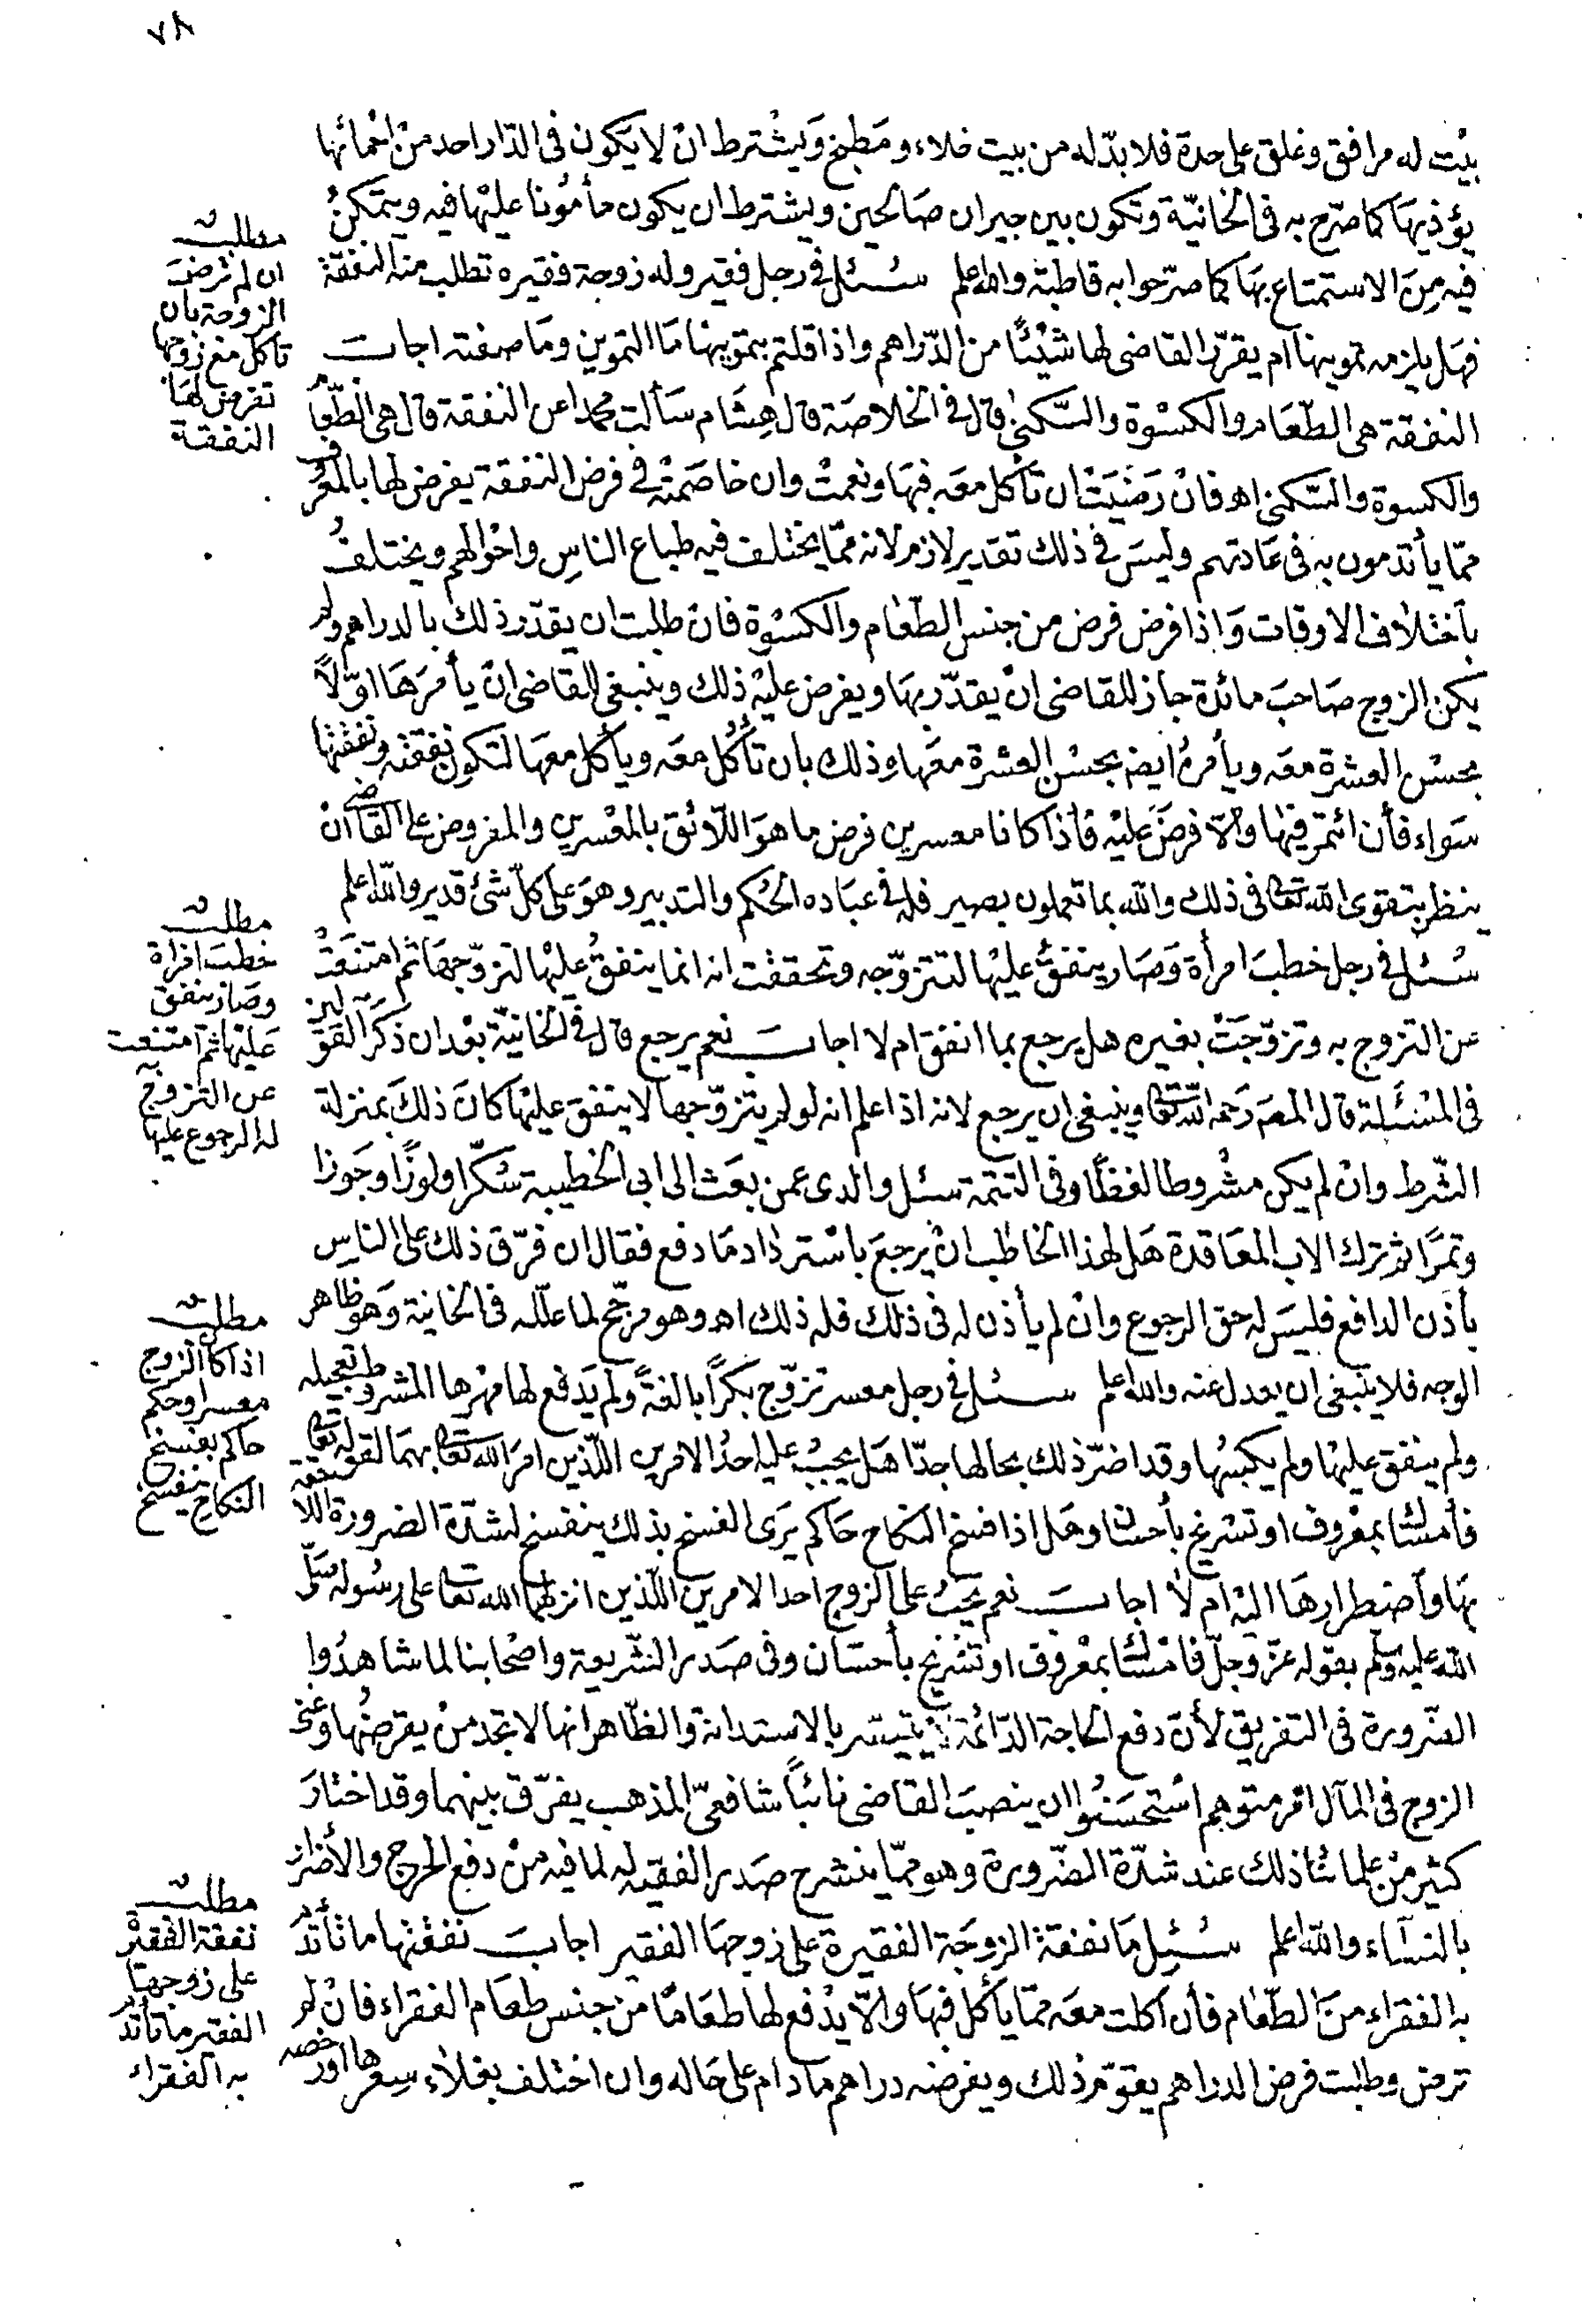 ٧٨
بيت له مرافق وغلق على حدة فلا بدّ له من بيت خلاء ومطبخ ويشترط ان لا يكون فى الدّار احد من احمائها
يؤذيها كما صرّح به فى الخانيّة وتكون بين جيران صالحين ويشترط ان يكون مأمونا عليها فيه ويتمكن
فيه من الاستمتاع بها كما صرّحوا به قاطبة والله اعلم سئل فى رجل فقير وله زوجة فقيره تطلب منه النفقة
فهل يلزمه تموينها ام يقرّر القاضى لها شيئا من الدّراهم واذا قلتم بتموينها ما التموين وما صفته اجاب
النفقة هى الطّعام والكسوة والسّكنى قال فى الخلاصة قال هشام سألت محمدا عن النفقة قال هى الطّعام
والكسوة والسّكنى اه فان رضيت ان تأكل معه فبها ونعمت وان خاصمته فى فرض النفقة يفرض لها بالمعروف
ممّا يأتدمون به فى عادتهم وليس فى ذلك تقدير لازم لانه ممّا يختلف فيه طباع الناس واحوالهم ويختلف
باختلاف الاوقات واذا فرض فرض من جنس الطّعام والكسوة فان طلبت ان يقدّر ذلك بالدراهم ولم
يكن الزوج صاحب مائدة جاز للقاضى ان يقدّر بها ويفرض عليه ذلك وينبغى للقاضى ان يأمرها اوّلاً
بحسن العشرة معه ويأمره ايضا بحسن العشرة معها وذلك بان تأكل معه ويأكل معها لتكون نفقته ونفقتها
سواء فأن ائتمر فبها والا فرض عليه فأذا كانا معسرين فرض ما هو اللائق بالمعسرين والمفروض على القاضى ان
ينظر بتقوى الله تعالى فى ذلك والله بما تعملون بصير فله فى عباده الحكم والتدبير وهو على كلّ شئ قدير والله اعلم
سئل فى رجل خطب امرأة وصار ينفق عليها لتتزوّجه وتحققت انه انما ينفق عليها لتزوّجها ثم امتنعت
عن التزوج به وتزوّجت بغيره هل يرجع بما انفق ام لا اجاب نعم يرجع قال فى الخانيّة بعد ان ذكر القولين
فى المسئلة قال المصّ رحمه الله تعالى وينبغى ان يرجع لانه اذا علم انه لو لم يتزوّجها لا ينفق عليها كان ذلك بمنزلة
الشّرط وان لم يكن مشروطا لفظًا وفى التتمة سئل والدى عمن بعث الى ابى الخطيبة سكّرا ولوزًا وجوزا
وتمرًا ثم ترك الاب المعاقدة هل لهذا الخاطب ان يرجع باسترداد ما دفع فقال ان فرّق ذلك على الناس
بأذن الدافع فليس له حق الرجوع وان لم يأذن له فى ذلك فله ذلك اه وهو مرجّح لما علّله فى الخانية وهو ظاهر
الوجه فلا ينبغى ان يعدل عنه والله اعلم سئل فى رجل معسر تزوّج بكرًا بالغةً ولم يدفع لها مهرها المشروط تعجيله
ولم ينفق عليها ولم يكسها وقد اضرّ ذلك بحالها جدّا هل يجب عليه احد الامرين اللّذين امر الله تعالى بهما لقوله تعالى
فأمساك بمعروف او تسريح بأحسان وهل اذا فسخ النكاح حاكم يرى الفسخ بذلك ينفسخ لشدّة الضرورة اللاحقة
بها واضطرارها اليه ام لا اجاب نعم يجب على الزوج احد الامرين اللّذين انزلهما الله تعالى على رسوله صلّى
الله عليه وسلّم بقوله عزّ وجلّ فامساك بمعروف او تسريح بأحسان وفى صدر الشّريعة واصحابنا لما شاهدوا
الضّرورة فى التفريق لأن دفع الحاجة الدّائمة لا يتيسّر بالاستدانة والظّاهر انها لا تجد من يقرضها وغنى
الزوج فى المآل امر متوهم استحسنوا ان ينصب القاضى نائبًا شافعىّ المذهب يفرّق بينهما وقد اختار
كثير من علمائنا ذلك عند شدّة الضّرورة وهو ممّا ينشرح صدر الفقيه له لما فيه من دفع الحرج والأضرار
بالنسآء والله اعلم سئل ما نفقة الزوجة الفقيرة على زوجها الفقير اجاب نفقتها ما تأتدم
به الفقراء من الطّعام فأن اكلت معه ممّا يأكل فبها والاّ يدفع لها طعامًا من جنس طعام الفقراء فان لم
ترض وطلبت فرض الدراهم يقوّم ذلك ويفرضه دراهم ما دام على حاله وان اختلف بغلاء سعرها او رخصه
مطلب
ان لم ترض
الزوجة بان
تأكل مع زوجها
تفرض لها
النفقة
مطلب
خطب امراة
وصار ينفق
عليها ثم امتنعت
عن التزوج به
له الرجوع عليها
مطلب
اذا كان الزوج
معسرا وحكم
حاكم بفسخ
النكاح ينفسخ
مطلب
نفقة الفقيرة
على زوجها
الفقير ما تأتدم
به الفقراء